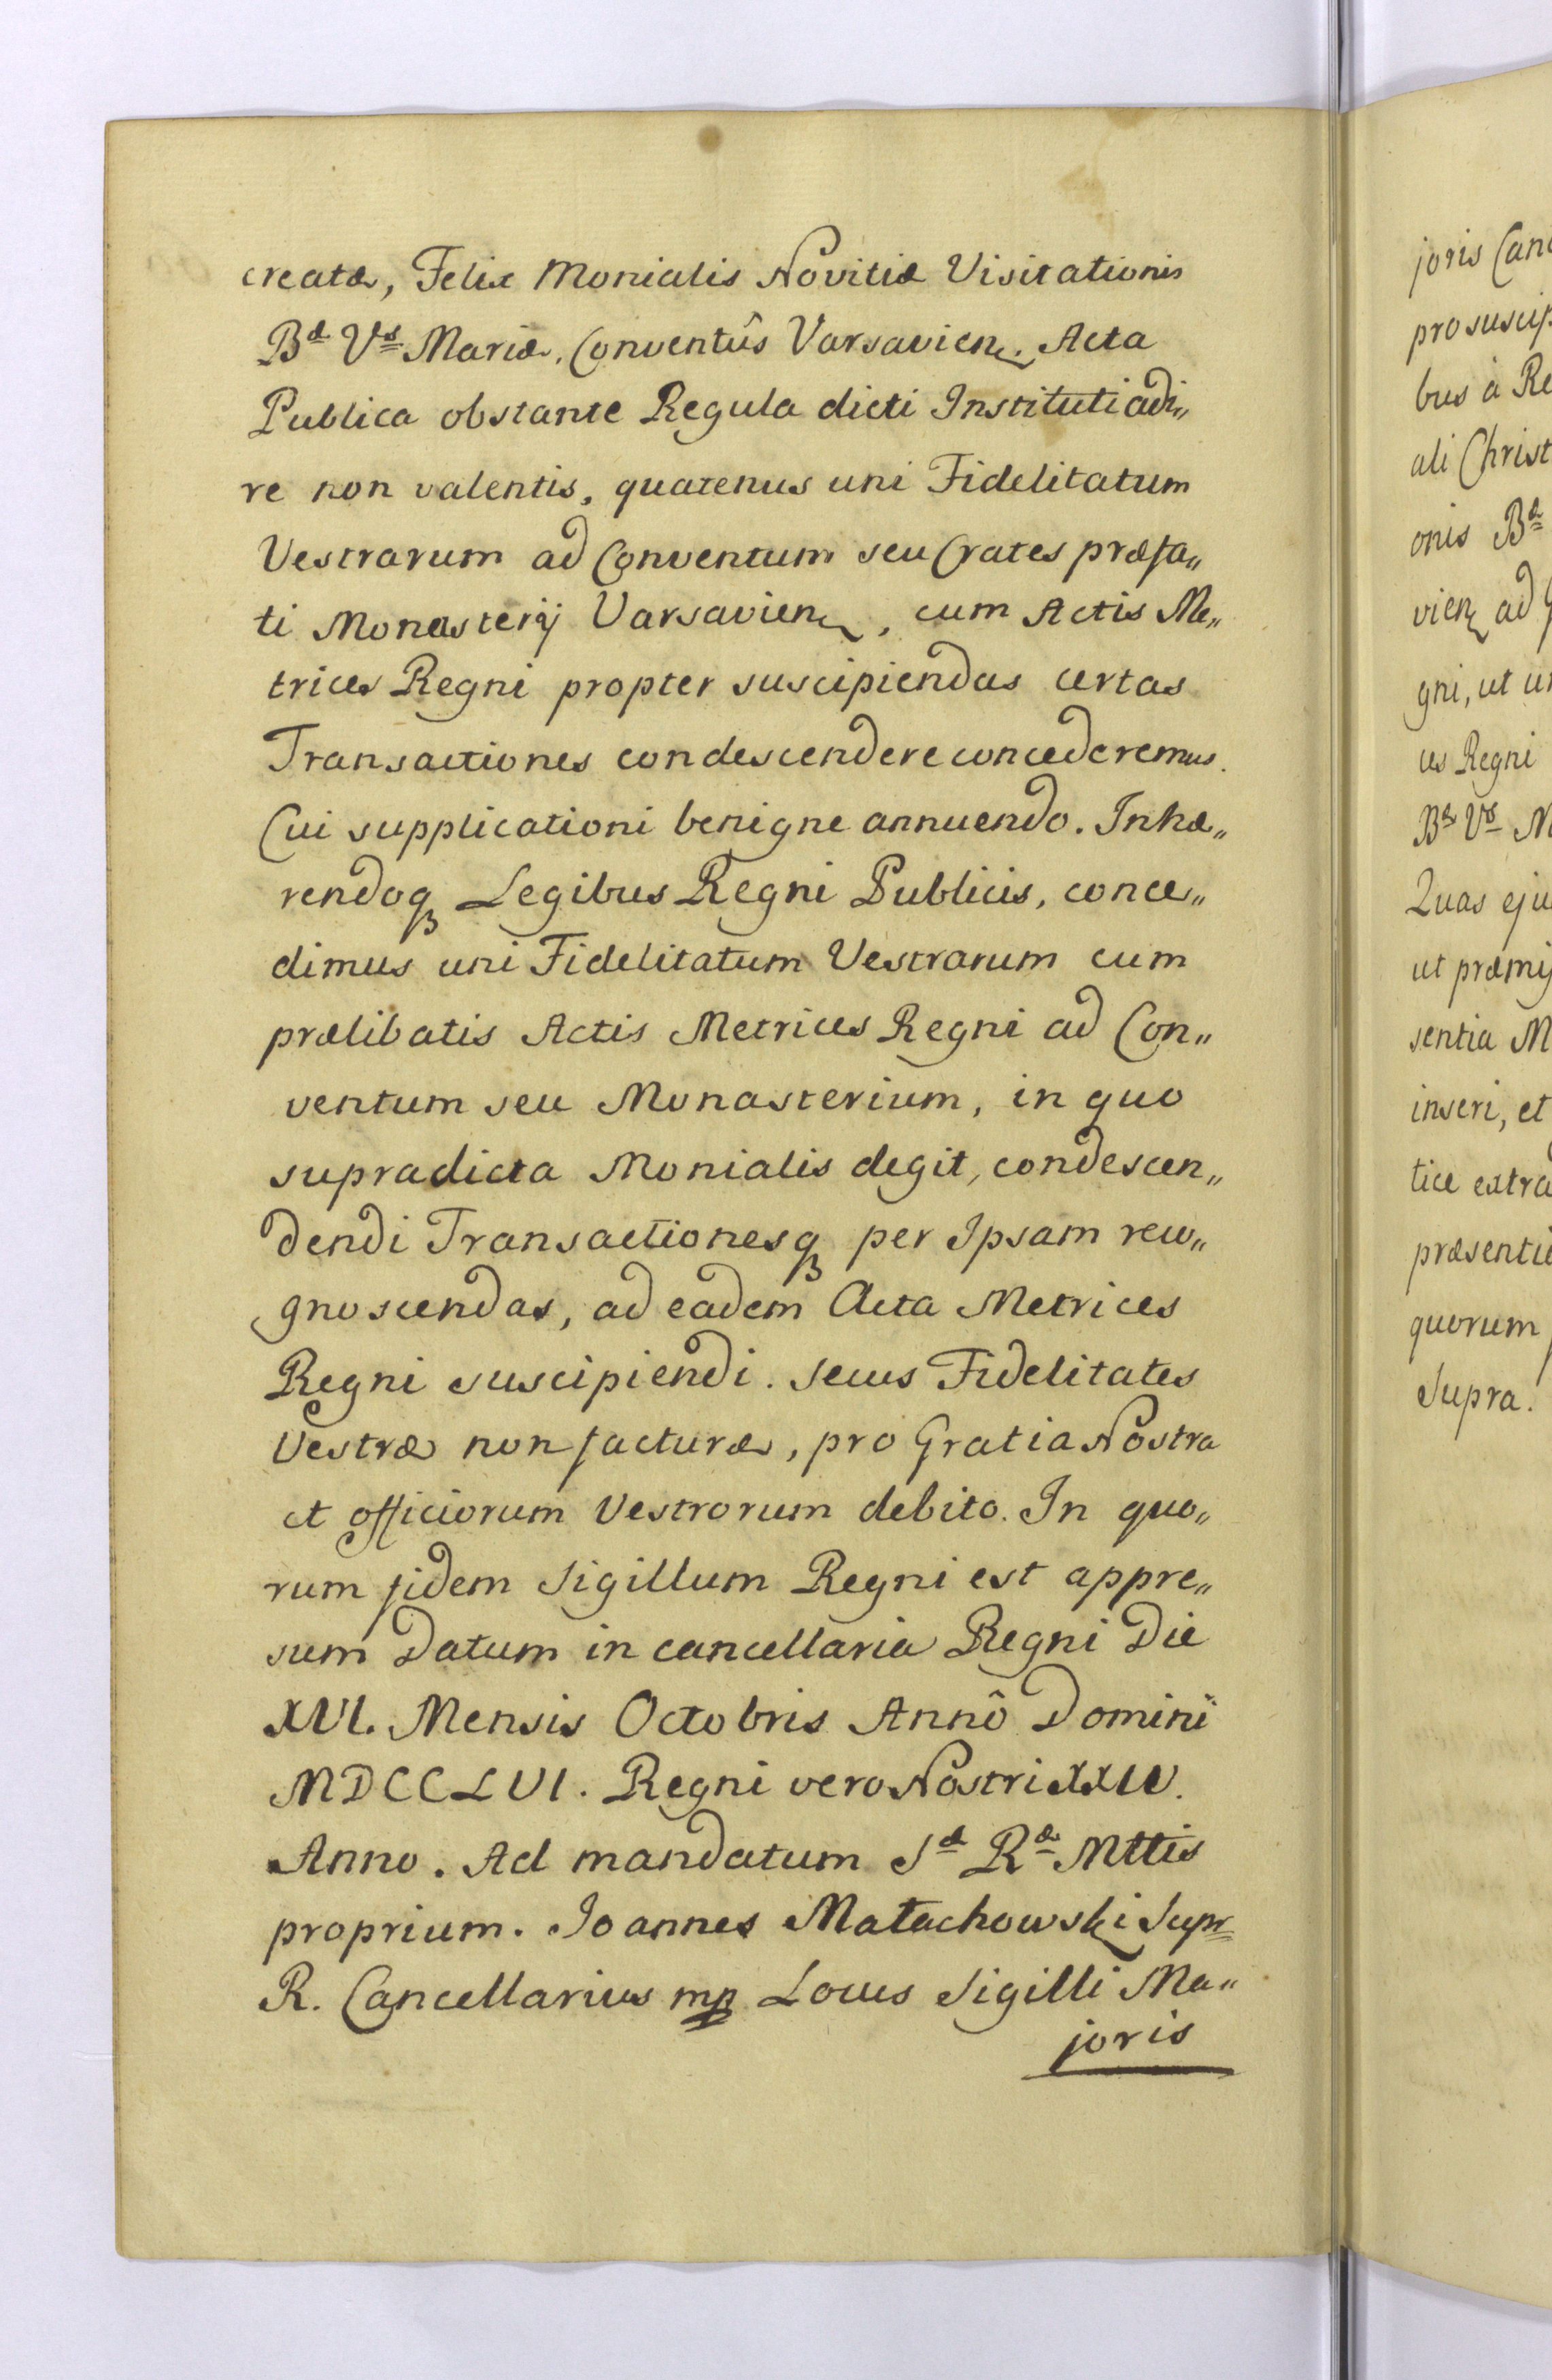 creatæ, Felix Monialis Novitiæ Visitationis
Bæ Vs Mariæ, Conventûs Varsavien. Acta
Publica obstante Regula dicti Instituti adi„
re non valentis, quatenus uni Fidelitatum
Vestrarum ad Conventum seu Crates præfa„
ti Monasterij Varsavien, cum Actis Me„
trices Regni propter suscipiendas certas
Transactiones condescendere concederemus.
Cui supplicationi benigne annuendo. Inhæ„
rendoq Legibus Regni Publicis, conce„
dimus uni Fidelitatum Vestrarum cum
prælibatis Actis Metrices Regni ad Con„
ventum seu Monasterium, in quo
supradicta Monialis degit, condescen„
dendi Transactionesq per Ipsam reco„
gnoscendas, ad eadem Acta Metrices
Regni suscipiendi. Secus Fidelitates
Vestræ non facturæ, pro Gratia Nostra
et officiorum Vestrorum debito. In quo„
rum fidem Sigillum Regni est appre„
sum Datum in cancellaria Regni Die
XVI. Mensis Octobris Annô Domini
MDCCLVI. Regni vero Nostri XXIV.
Anno. Ad mandatum Sæ Ræ Mttis
proprium. Joannes Małachowski Supr
R. Cancellarius mp Locus Sigilli Ma„
joris
joris Canc
pro suscip
bus à Re
ali Christ
onis Bæ
vien ad
gni, ut un
ces Regni
Bæ Vs M
Quas eju
ut præmij
sentia M
inseri, et
tice extra
præsentie
quorum
Supra.